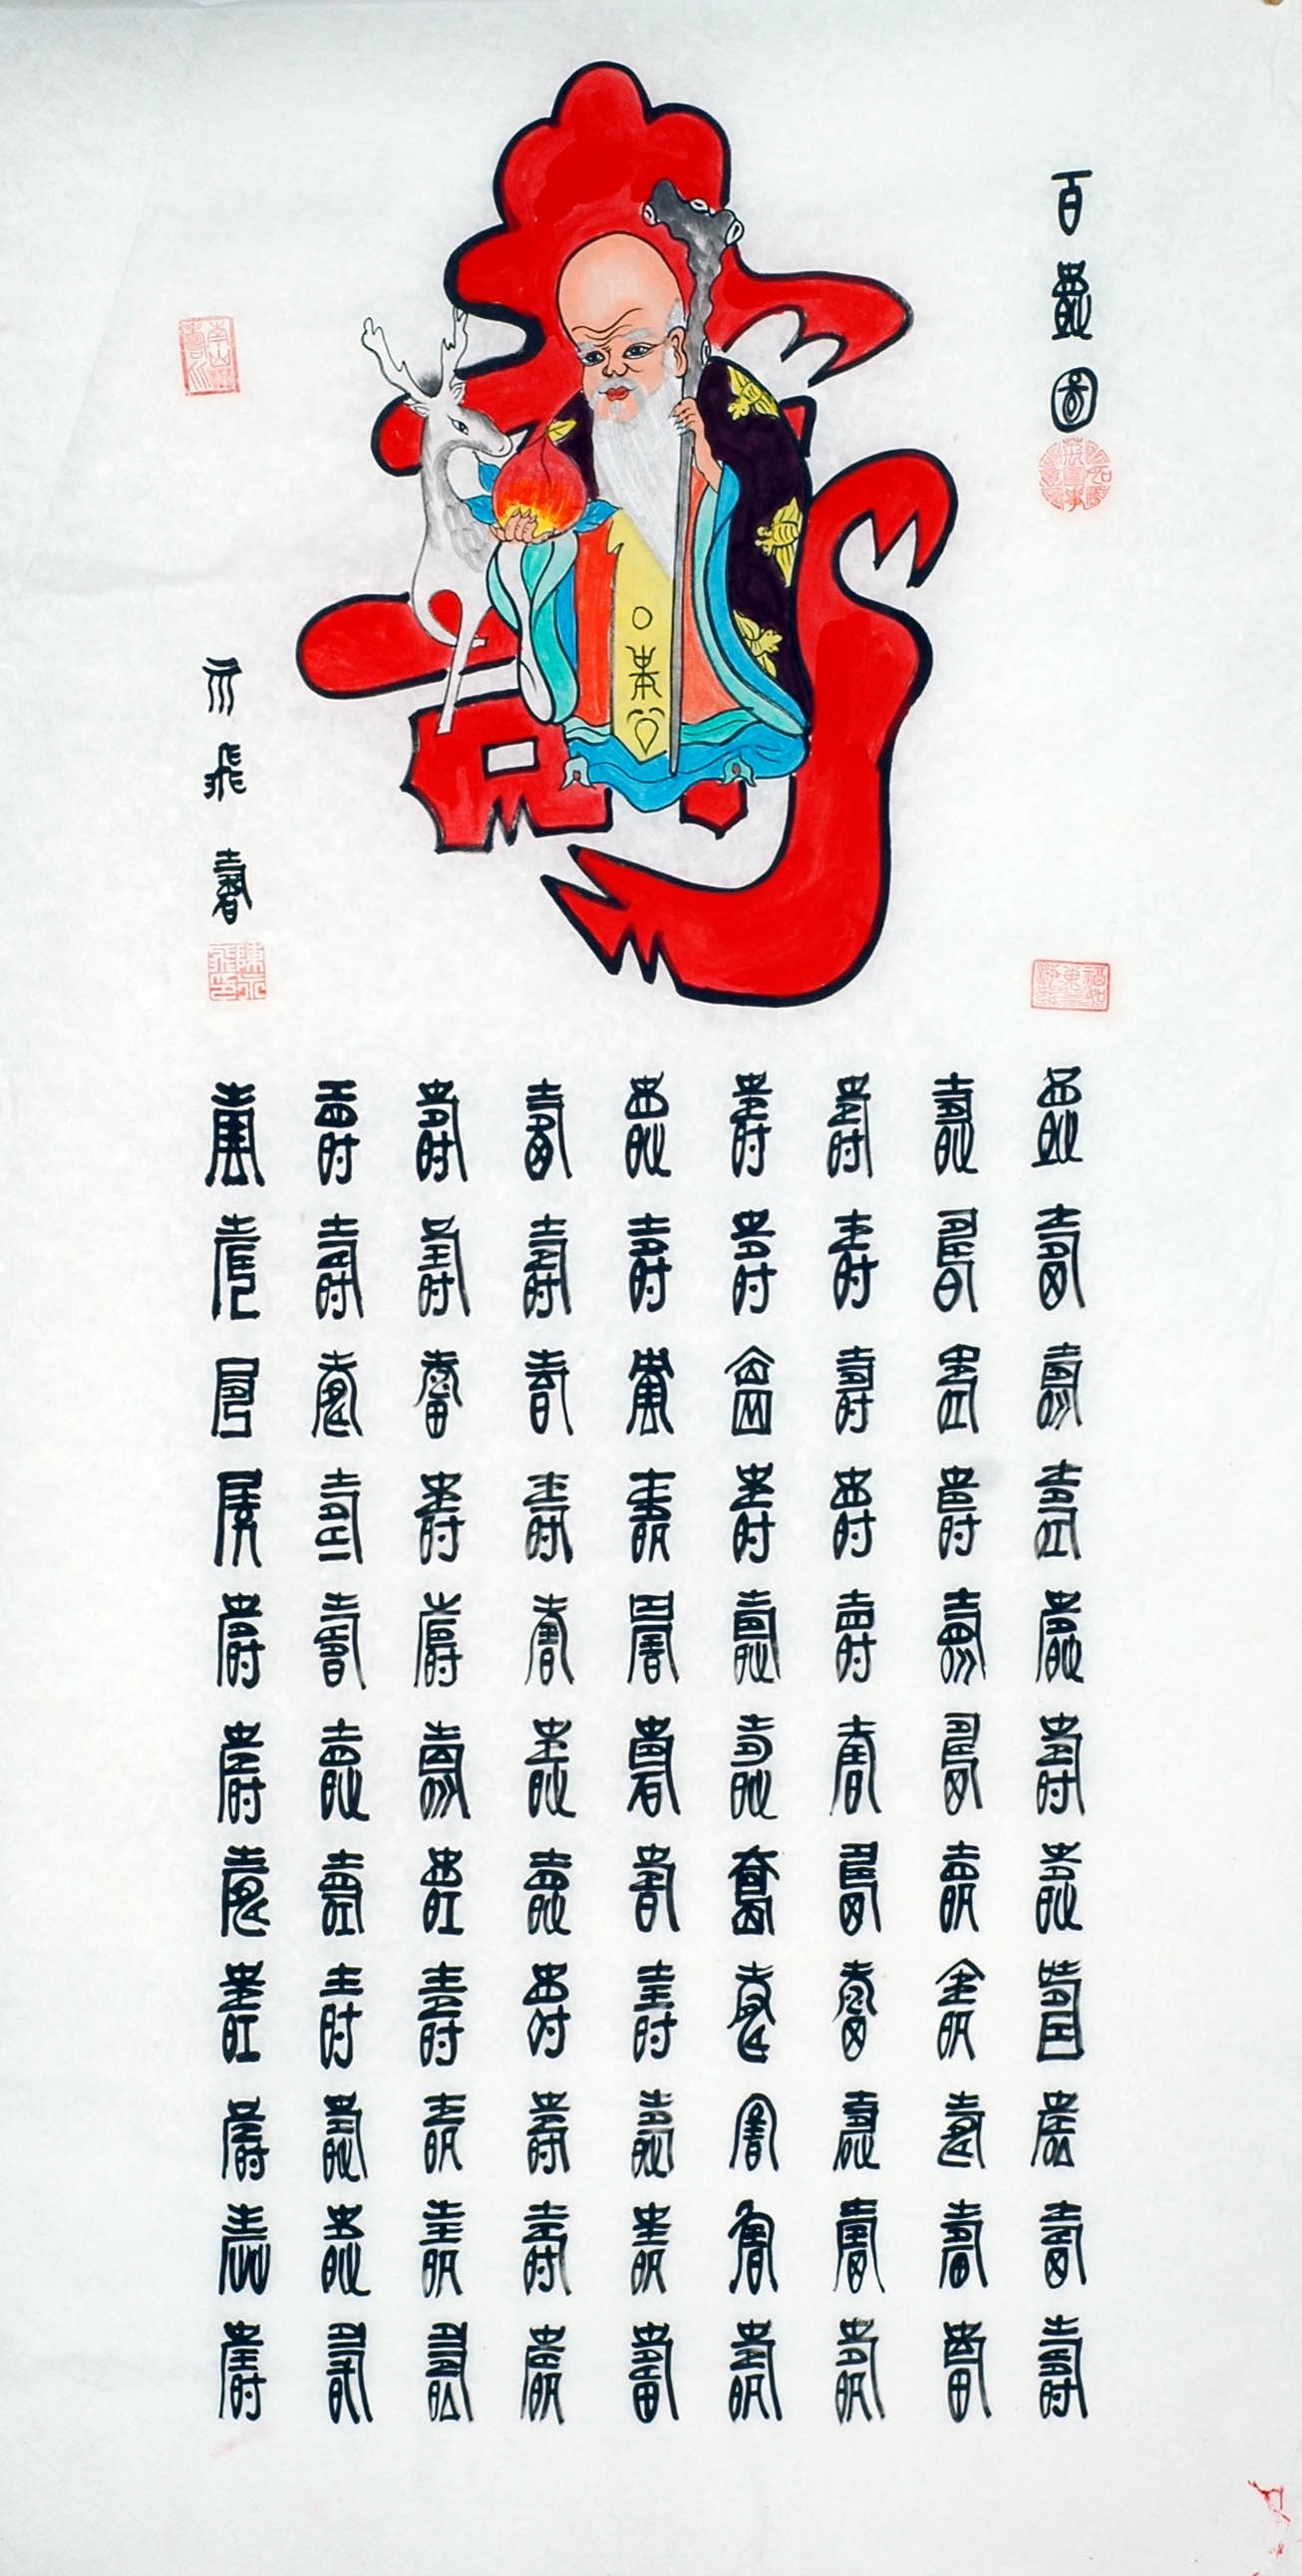 百壽圖
壽
福如東海
壽壽壽壽壽壽壽壽壽壽壽
壽壽壽壽壽壽壽壽壽壽壽
壽壽壽壽壽壽壽壽壽壽壽
壽壽壽壽壽壽壽壽壽壽壽
壽壽壽壽壽壽壽壽壽壽壽
壽壽壽壽壽壽壽壽壽壽壽
壽壽壽壽壽壽壽壽壽壽壽
壽壽壽壽壽壽壽壽壽壽壽
壽壽壽壽壽壽壽壽壽壽壽
永飛書
陳永飛印